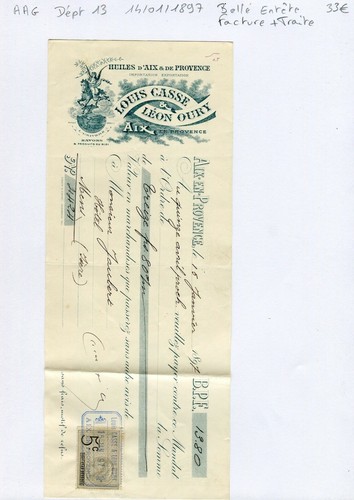 AAG Dépt 13 14/01/1897 Bollé Entête 33€
Facture + Traite
HUILES D'AIX & DE PROVENCE
IMPORTATION EXPORTATION
LOUIS CASSE
&
LÉON OURY
AIX EN PROVENCE
SAVONS
& PRODUITS DU MIDI
AIX-EN-PROVENCE, le 15 Janvier 1897 B.P.F. 13.80
Au quinze avril proch. veuillez payer contre ce Mandat
à l'Ordre de la Somme
de Treize fcs 80 c/m
Valeur en marchandises que passerez sans autre avis de
à Monsieur Jaubert
Hôtel
Mens (Isère)
5c